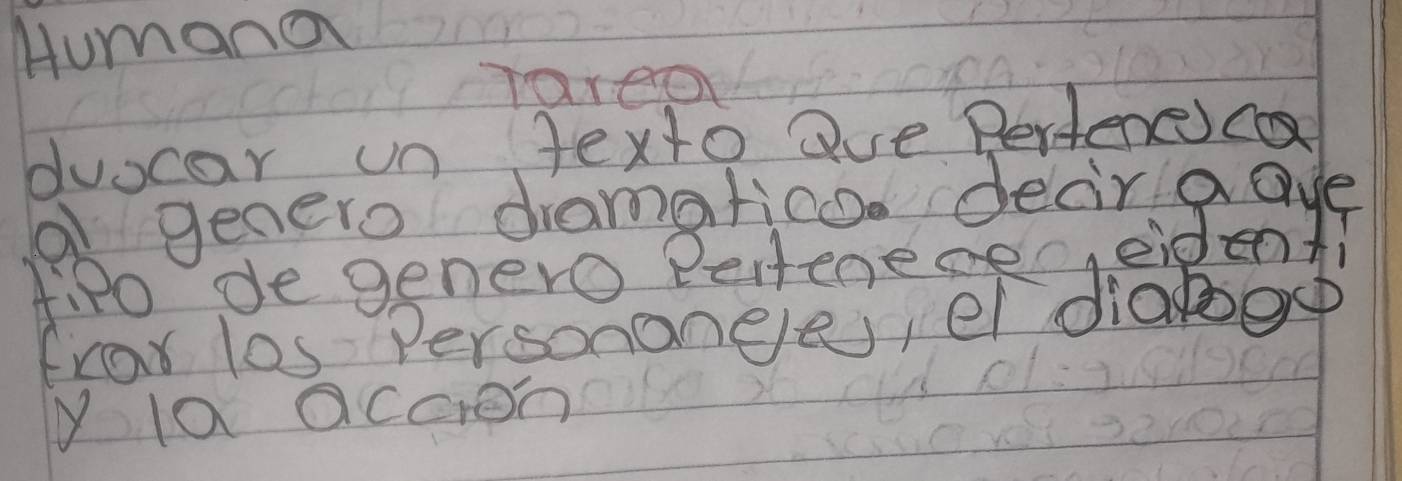 Humana
Tarea
duscar un texto Que Pertenesca
al genero dramatico. decir a que
tipo de genero Pertenece, eidenti
frar los Personanejes, el dialogo
y la acción